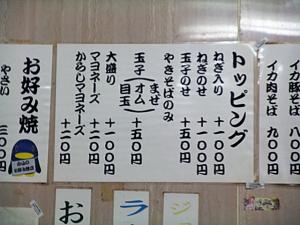 イカ豚そば 八〇〇円
イカ肉そば 九〇〇円
トッピング
ねぎ入り +一〇〇円
ねぎのせ +一〇〇円
玉子のせ +五〇円
やきそばのみ
玉子(まぜ オム 目玉) +五〇円
大盛り +一〇〇円
マヨネーズ +二〇円
からしマヨネーズ +二〇円
お好み焼
やさい 三〇〇円
お
ラ
ジ